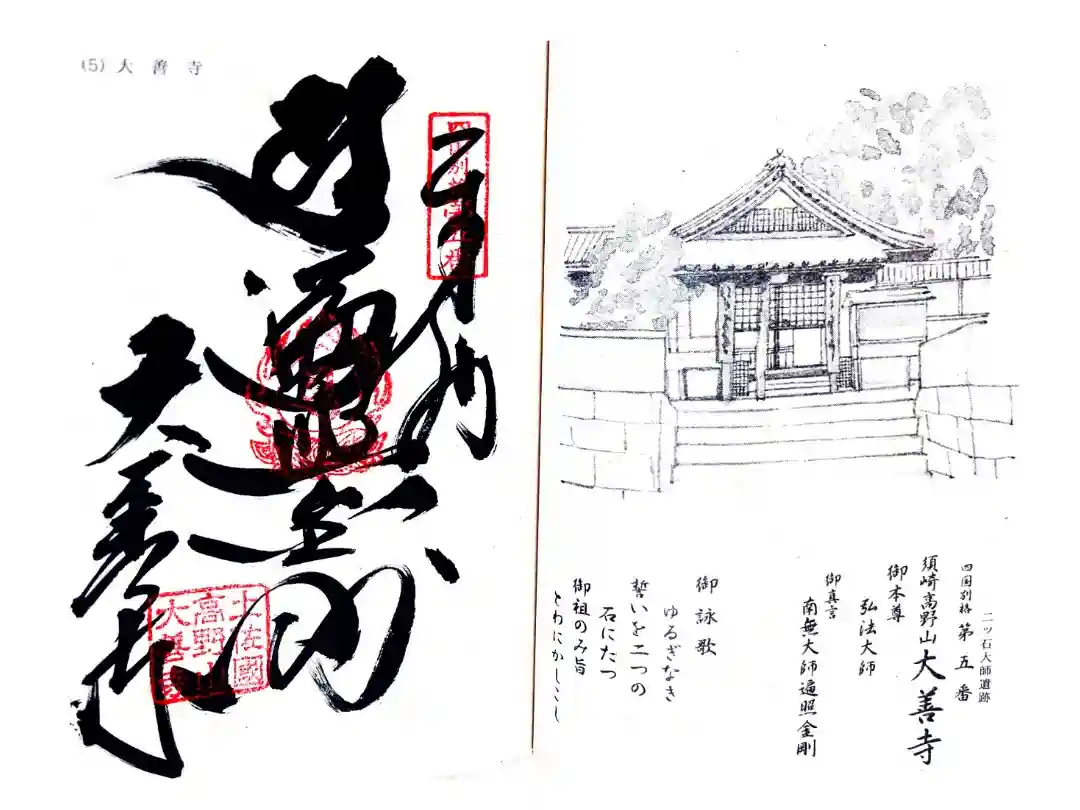 二ツ石大師遺跡
四国別格 第五番
須崎高野山 大善寺
御本尊
弘法大師
御真言
南無大師遍照金剛
御詠歌
ゆるぎなき
誓いを二つの
石にたつ
御祖のみ旨
とわにかしこし
(5) 大善寺
遍照金剛
大善寺
土佐國
高野山
大善寺